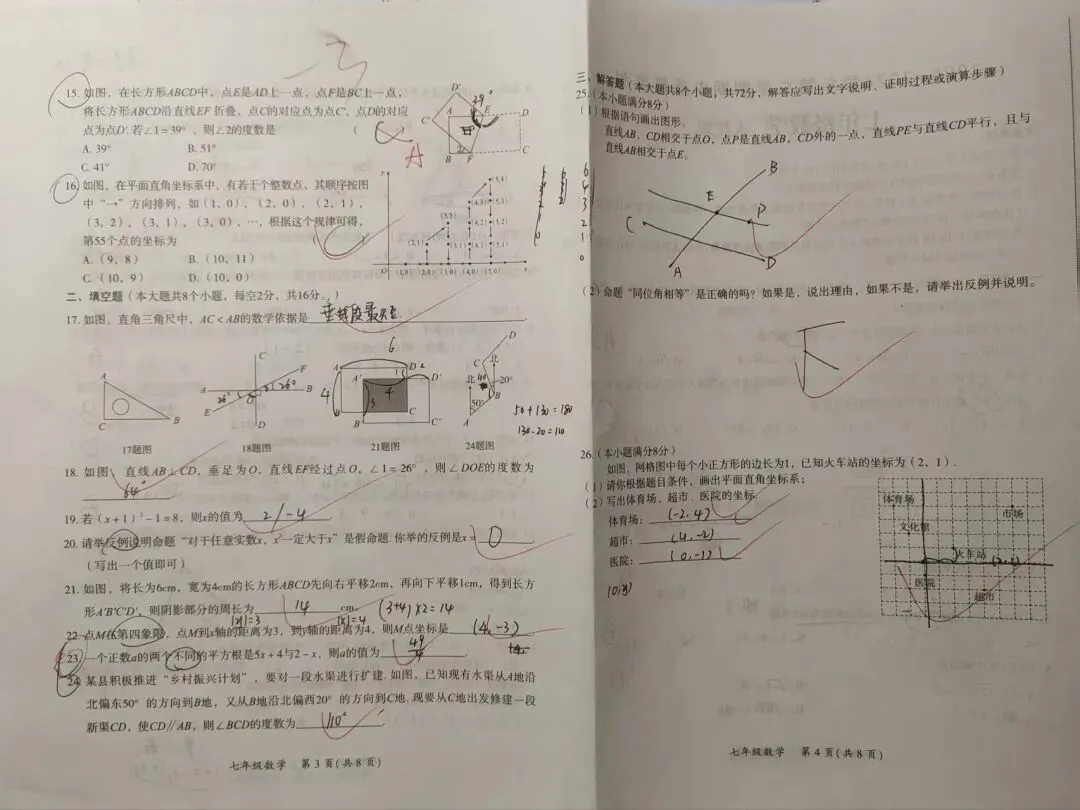 15. 如图，在长方形ABCD中，点E是AD上一点，点F是BC上一点，
将长方形ABCD沿直线EF折叠，点C的对应点为点C'，点D的对应
点为点D'.若∠1=39°，则∠2的度数是 (
A. 39° B. 51°
C. 41° D. 70°
A
D'
39°
E
D
C'
A
B
F
C
16. 如图，在平面直角坐标系中，有若干个整数点，其顺序按图
中“→”方向排列，如（1，0），（2，0），（2，1），
（3，2），（3，1），（3，0），…，根据这个规律可得，
第55个点的坐标为 ( )
A.（9，8） B.（10，11）
C.（10，9） D.（10，0）
y
(5,4)
(4,3) (5,3)
(3,2) (4,2) (5,2)
(2,1) (3,1) (4,1) (5,1)
O (1,0) (2,0) (3,0) (4,0) (5,0) x
二、填空题（本大题共8个小题，每空2分，共16分。）
17. 如图，直角三角尺中，AC＜AB的数学依据是 垂线段最短.
A
C
B
17题图
C
F
A
26°
O
1
26°
B
E
D
18题图
6
A
D 2
1
A'
D'
4
4
3
B
C
B'
C'
21题图
D
C
北
40
北
20°
B
50°
A
24题图
50+130=180
130-20=110
18. 如图，直线AB⊥CD，垂足为O，直线EF经过点O，∠1=26°，则∠DOE的度数为
64°
19. 若（x+1）²-1=8，则x的值为 2/-4
20. 请举反例说明命题“对于任意实数x，x²一定大于x”是假命题.你举的反例是x= 0
（写出一个值即可）
21. 如图，将长为6cm，宽为4cm的长方形ABCD先向右平移2cm，再向下平移1cm，得到长方
形A'B'C'D'，则阴影部分的周长为 14 cm. (3+4)×2=14
|y|=3 |x|=4
22. 点M在第四象限，点M到x轴的距离为3，到y轴的距离为4，则M点坐标是 (4,-3)
23. 一个正数a的两个不同的平方根是5x+4与2-x，则a的值为 49/4
24. 某县积极推进“乡村振兴计划”，要对一段水渠进行扩建.如图，已知现有水渠从A地沿
北偏东50°的方向到B地，又从B地沿北偏西20°的方向到C地.现要从C地出发修建一段
新渠CD，使CD∥AB，则∠BCD的度数为 110°
七年级数学 第3页(共8页)
三、解答题（本大题共8个小题，共72分，解答应写出文字说明、证明过程或演算步骤）
25.（本小题满分8分）
（1）根据语句画出图形.
直线AB，CD相交于点O，点P是直线AB，CD外的一点，直线PE与直线CD平行，且与
直线AB相交于点E。
B
E
P
C
D
A
（2）命题“同位角相等”是正确的吗？如果是，说出理由，如果不是，请举出反例并说明。
26.（本小题满分8分）
如图，网格图中每个小正方形的边长为1，已知火车站的坐标为（2，1）.
（1）请你根据题目条件，画出平面直角坐标系；
（2）写出体育场、超市、医院的坐标.
体育场： (-2,4)
超市： (4,-2)
医院： (0,-1)
体育场
市场
文化馆
火车站
医院
超市
七年级数学 第4页(共8页)